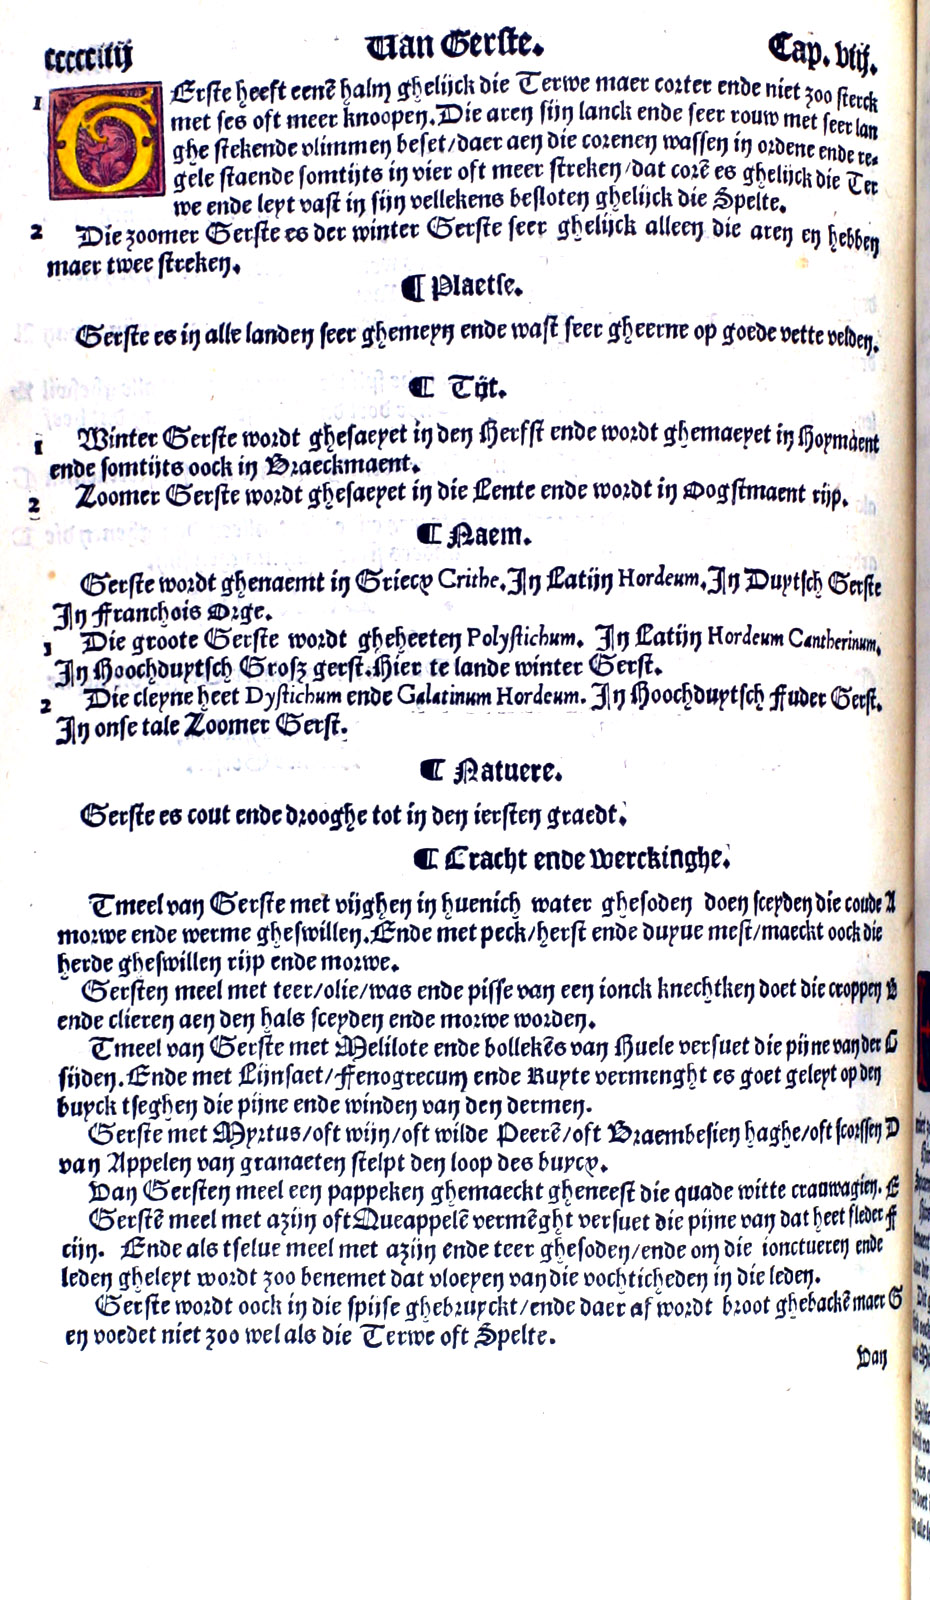 ccccciiij Van Gerste. Cap. viij.
1 GErste heeft eenē halm ghelijck die Terwe maer corter ende niet zoo sterck
met ses oft meer knoopen. Die aren sijn lanck ende seer rouw met seer lan
ghe stekende vlimmen beset/daer aen die corenen wassen in ordene ende re-
gele staende somtijts in vier oft meer streken/dat corē es ghelijck die Ter
we ende leyt vast in sijn vellekens besloten ghelijck die Spelte.
2 Die zoomer Gerste es der winter Gerste seer ghelijck alleen die aren en hebben
maer twee streken.
¶ Plaetse.
Gerste es in alle landen seer ghemeyn ende wast seer gheerne op goede vette velden.
¶ Tijt.
1 Winter Gerste wordt ghesaeyet in den Herfst ende wordt ghemaeyet in Hoymaent
ende somtijts oock in Braeckmaent.
2 Zoomer Gerste wordt ghesaeyet in die Lente ende wordt in Oogstmaent rijp.
¶ Naem.
Gerste wordt ghenaemt in Griecx Crithe. In Latijn Hordeum. In Duytsch Gerste
In Franchois Orge.
1 Die groote Gerste wordt gheheeten Polystichum. In Latijn Hordeum Cantherinum.
In Hoochduytsch Grosz gerst. Hier te lande winter Gerst.
2 Die cleyne heet Dystichum ende Galatinum Hordeum. In Hoochduytsch Fuder Gerst.
In onse tale Zoomer Gerst.
¶ Natuere.
Gerste es cout ende drooghe tot in den iersten graedt.
¶ Cracht ende Werckinghe.
Tmeel van Gerste met vijghen in huenich water ghesoden doen sceyden die coude A
morwe ende werme gheswillen. Ende met peck/herst ende duyue mest/maeckt oock die
herde gheswillen rijp ende morwe.
Gersten meel met teer/olie/was ende pisse van een ionck knechtken doet die croppen B
ende clieren aen den hals sceyden ende morwe worden.
Tmeel van Gerste met Melilote ende bollekēs van Huele versuet die pijne van der C
sijden. Ende met Lijnsaet/Fenogrecum ende Ruyte vermenght es goet geleyt op den
buyck tseghen die pijne ende winden van den dermen.
Gerste met Myrtus/oft wijn/oft wilde Peerē/oft Braembesien haghe/oft scorssen D
van Appelen van granaeten stelpt den loop des buycx.
Van Gersten meel een pappeken ghemaeckt gheneest die quade witte crauwagien. E
Gerstē meel met azijn oft Queappelē vermēght versuet die pijne van dat heet fleder F
cijn. Ende als tselue meel met azijn ende teer ghesoden/ende om die ionctueren ende
leden gheleyt wordt zoo benemet dat vloeyen van die vochticheden in die leden.
Gerste wordt oock in die spijse ghebruyckt/ende daer af wordt broot ghebackē maer G
en voedet niet zoo wel als die Terwe oft Spelte.
Van